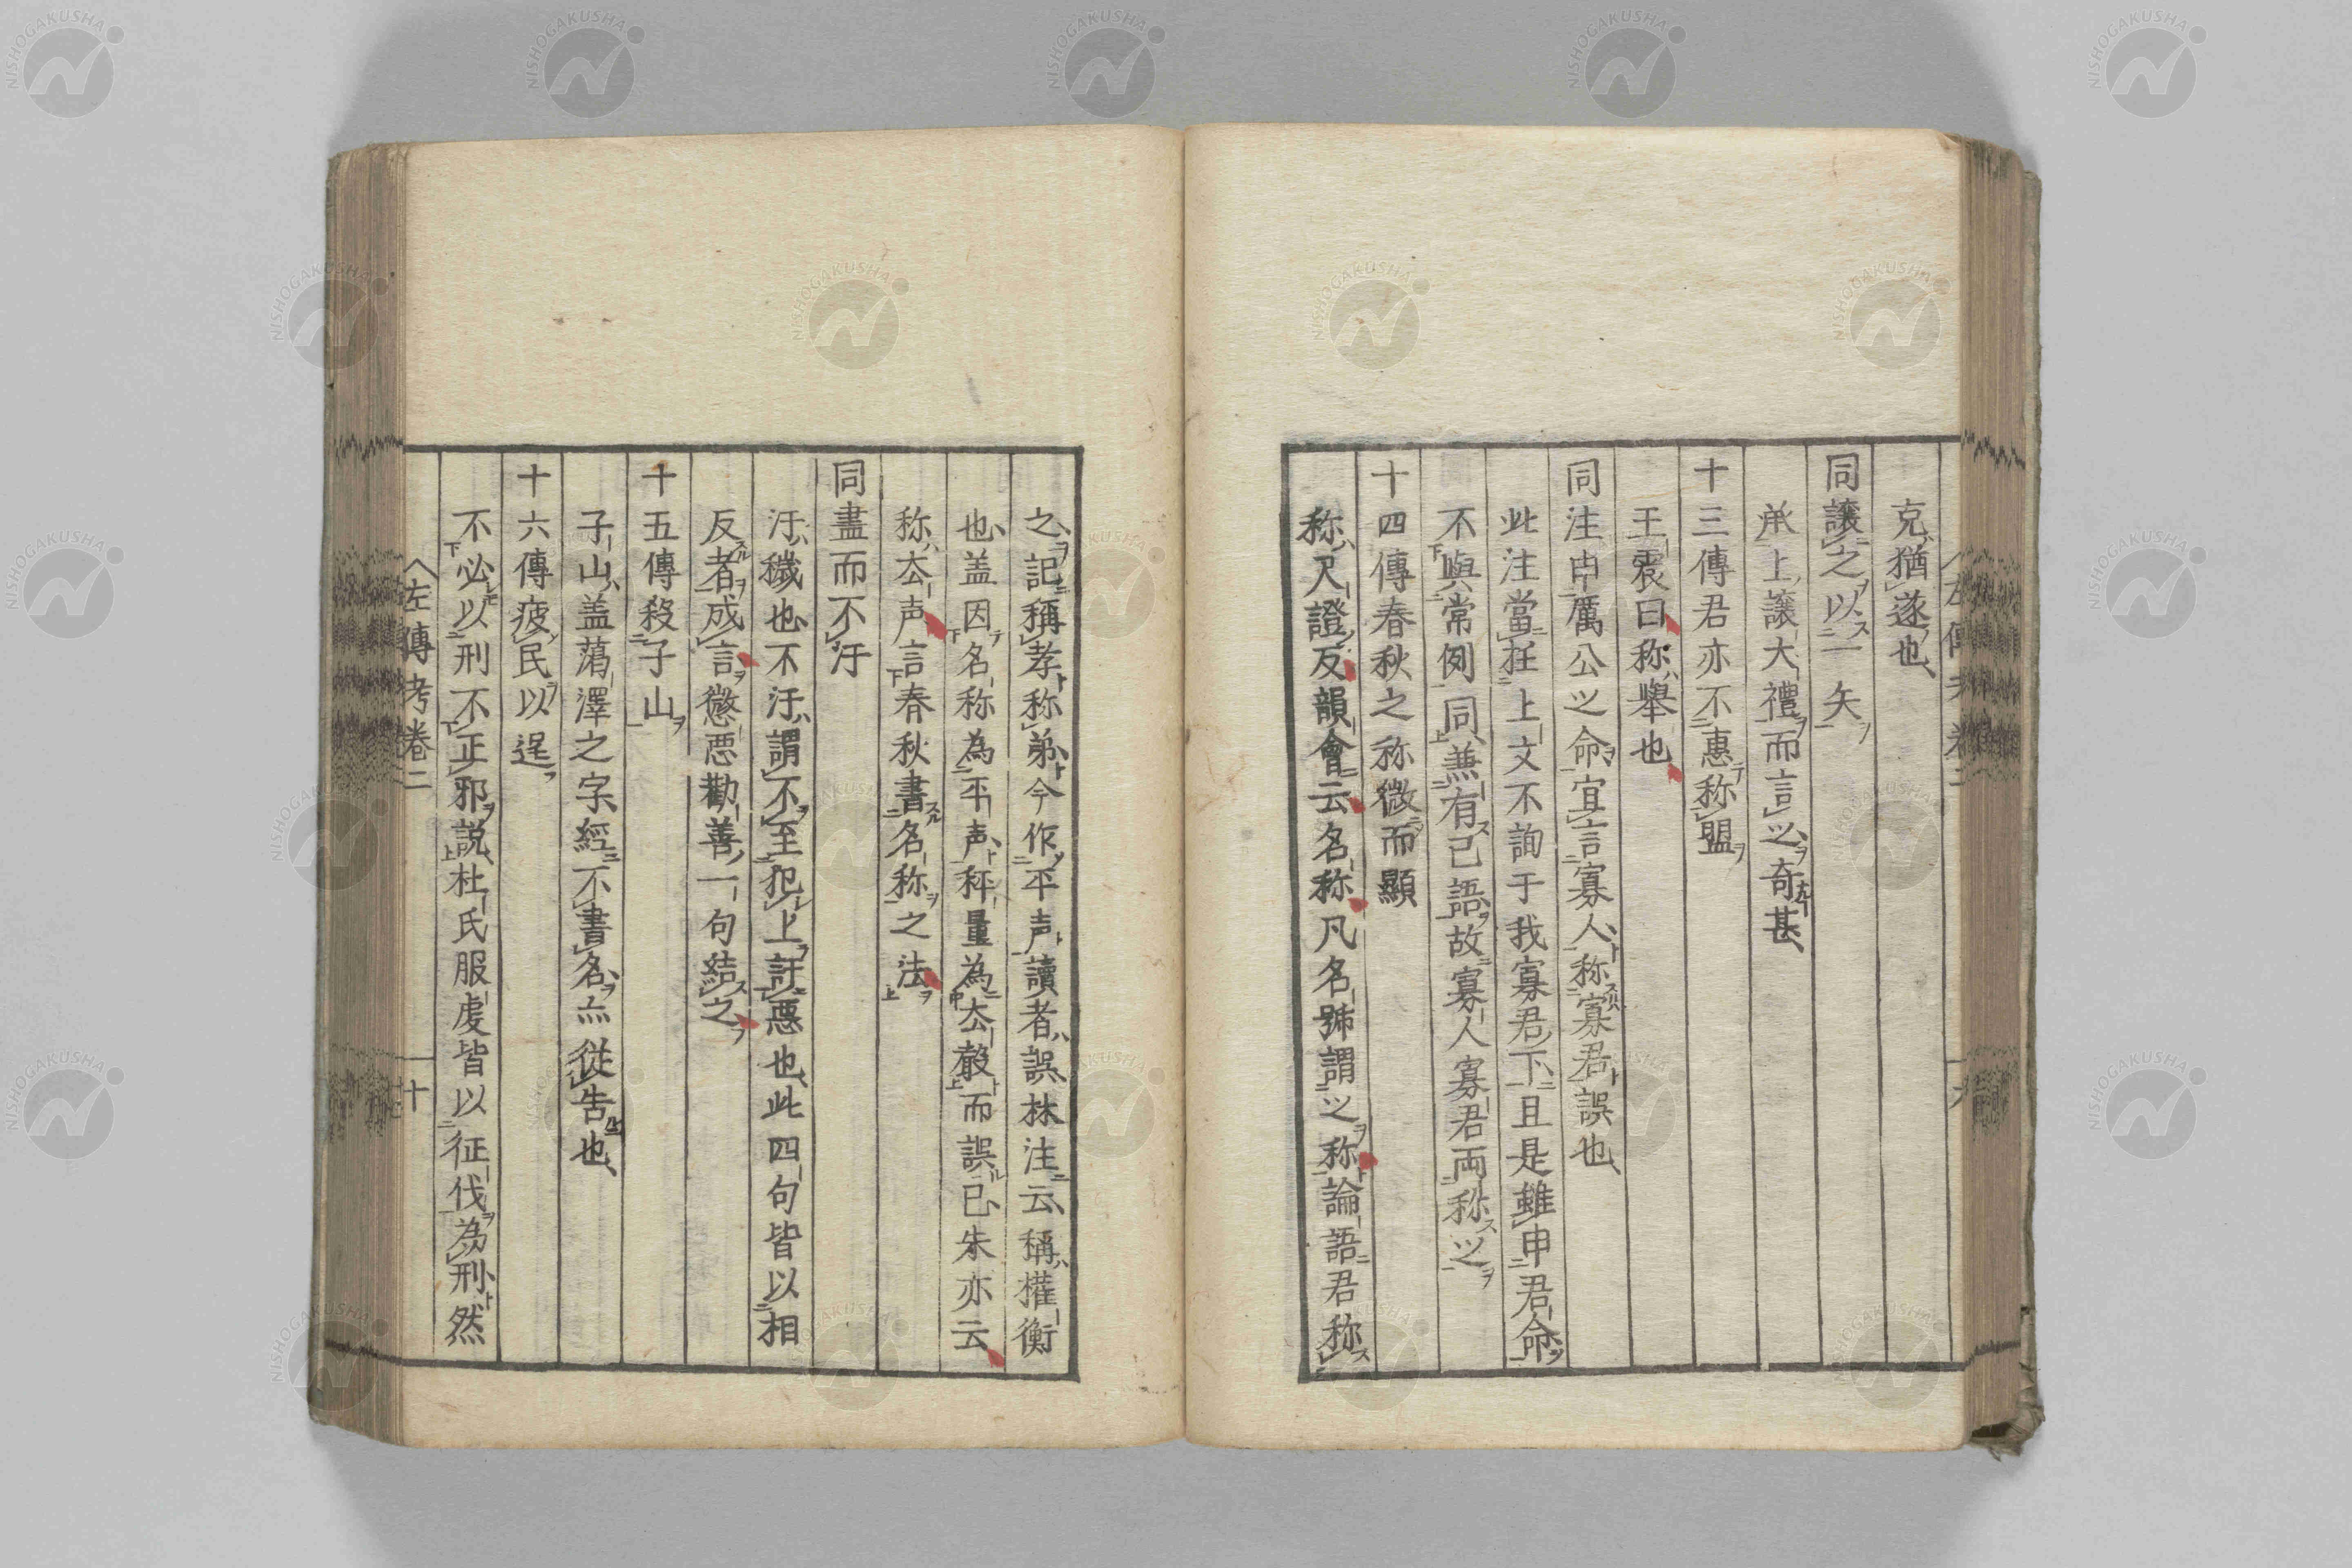 克猶遂也
同讓之以一矢
承上讓大禮而言之奇甚
十三傳君亦不惠称盟
王震曰称舉也
同注申厲公之命宜言寡人称寡君誤也
此注當在上文不詢于我寡君下且是雖申君命
不與常例同兼有己語故寡人寡君両称之
十四傳春秋之称微而顯
称尺證反韻會云名称凡名號謂之称論語君称
之記稱孝称弟今作平声讀者誤林注云稱權衡
也盖因名称為平声秤量為去声而誤已朱亦云
称去声言春秋書名称之法
同盡而不汙
汙穢也不汙謂不至犯上訐惡也此四句皆以相
反者成言懲悪勸善一句結之
十五傳殺子山
子山盖蕩澤之字經不書名亦從告也
十六傳疲民以逞
不必以刑不正邪説杜氏服虔皆以征伐為刑然
左傳考卷二
十
NISHOGAKUSHA